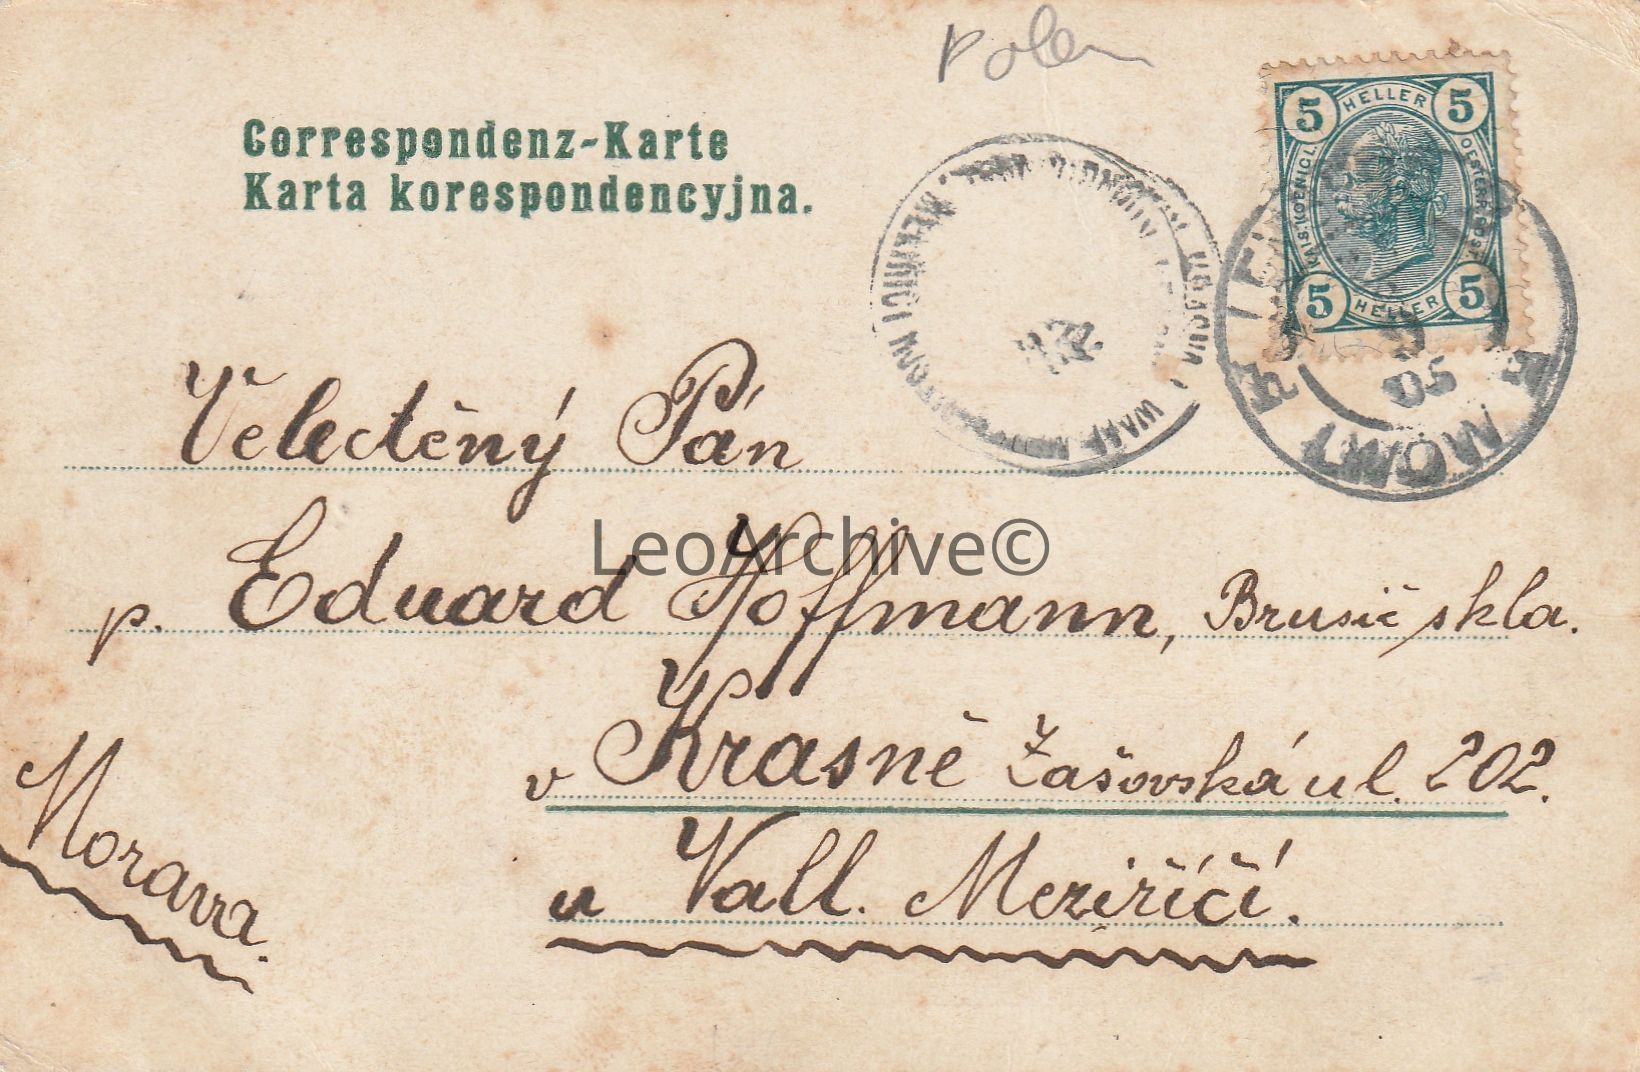 Polen
Correspondenz-Karte
Karta korespondencyjna.
5 HELLER 5
KAIS. KOENIGL. OESTERR. POST.
5 HELLER 5
Velectěný Pán
LeoArchive©
p. Eduard Hoffmann, Brusič skla.
v Krasně Žašovská ul. 202.
u Vall. Meziříčí.
Morava.